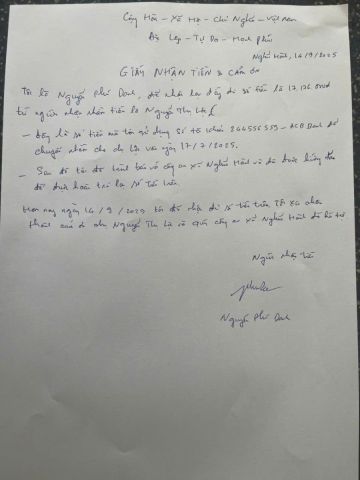 Cộng Hòa - Xã Hội - Chủ Nghĩa - Việt Nam
Độc Lập - Tự Do - Hạnh Phúc
Nghĩa Hành, 14/9/2025
GIẤY NHẬN TIỀN & CẢM ƠN
Tôi là Nguyễn Phú Danh, đã nhận lại đầy đủ số tiền là 17,176,000đ
từ người nhận nhầm tiền là Nguyễn Thị Lệ
- Đây là số tiền mà tôi sử dụng số tài khoản 264556559 - ACB Bank để
chuyển nhầm cho chị Lệ vào ngày 17/7/2025.
- Sau đó tôi đã trình báo về công an xã Nghĩa Hành và đã được hướng dẫn
để được hoàn trả lại số tiền trên.
Hôm nay ngày 14/9/2025 tôi đã nhận đủ số tiền trên. Tôi xin chân
thành cảm ơn chị Nguyễn Thị Lệ và Quý công an xã Nghĩa Hành đã hỗ trợ
Người nhận tiền
Nguyễn Phú Danh